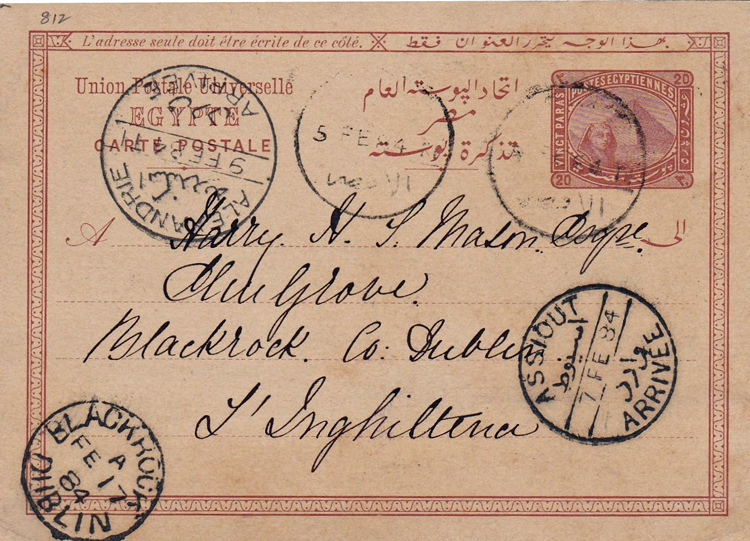 812
L'adresse seule doit être écrite de ce côté.
بهذا الوجه يتحرر العنوان فقط
Union Postale Universelle
اتحاد البوستة العام
EGYPTE
مصر
CARTE POSTALE
تذكرة بوستة
20 POSTES EGYPTIENNES ٢٠
VINGT PARAS
20 ٢٠
ALEXANDRIE
ARRIVÉE
9 FE 84
5 FE 84
A
الى
Harry. H. S. Mason. Esqre.
Elm Grove.
Blackrock. Co. Dublin
L'Inghilterra
ASSIOUT
اسيوط
7 FE 84
وارد
ARRIVÉE
BLACKROCK
A
FE 17
84
DUBLIN